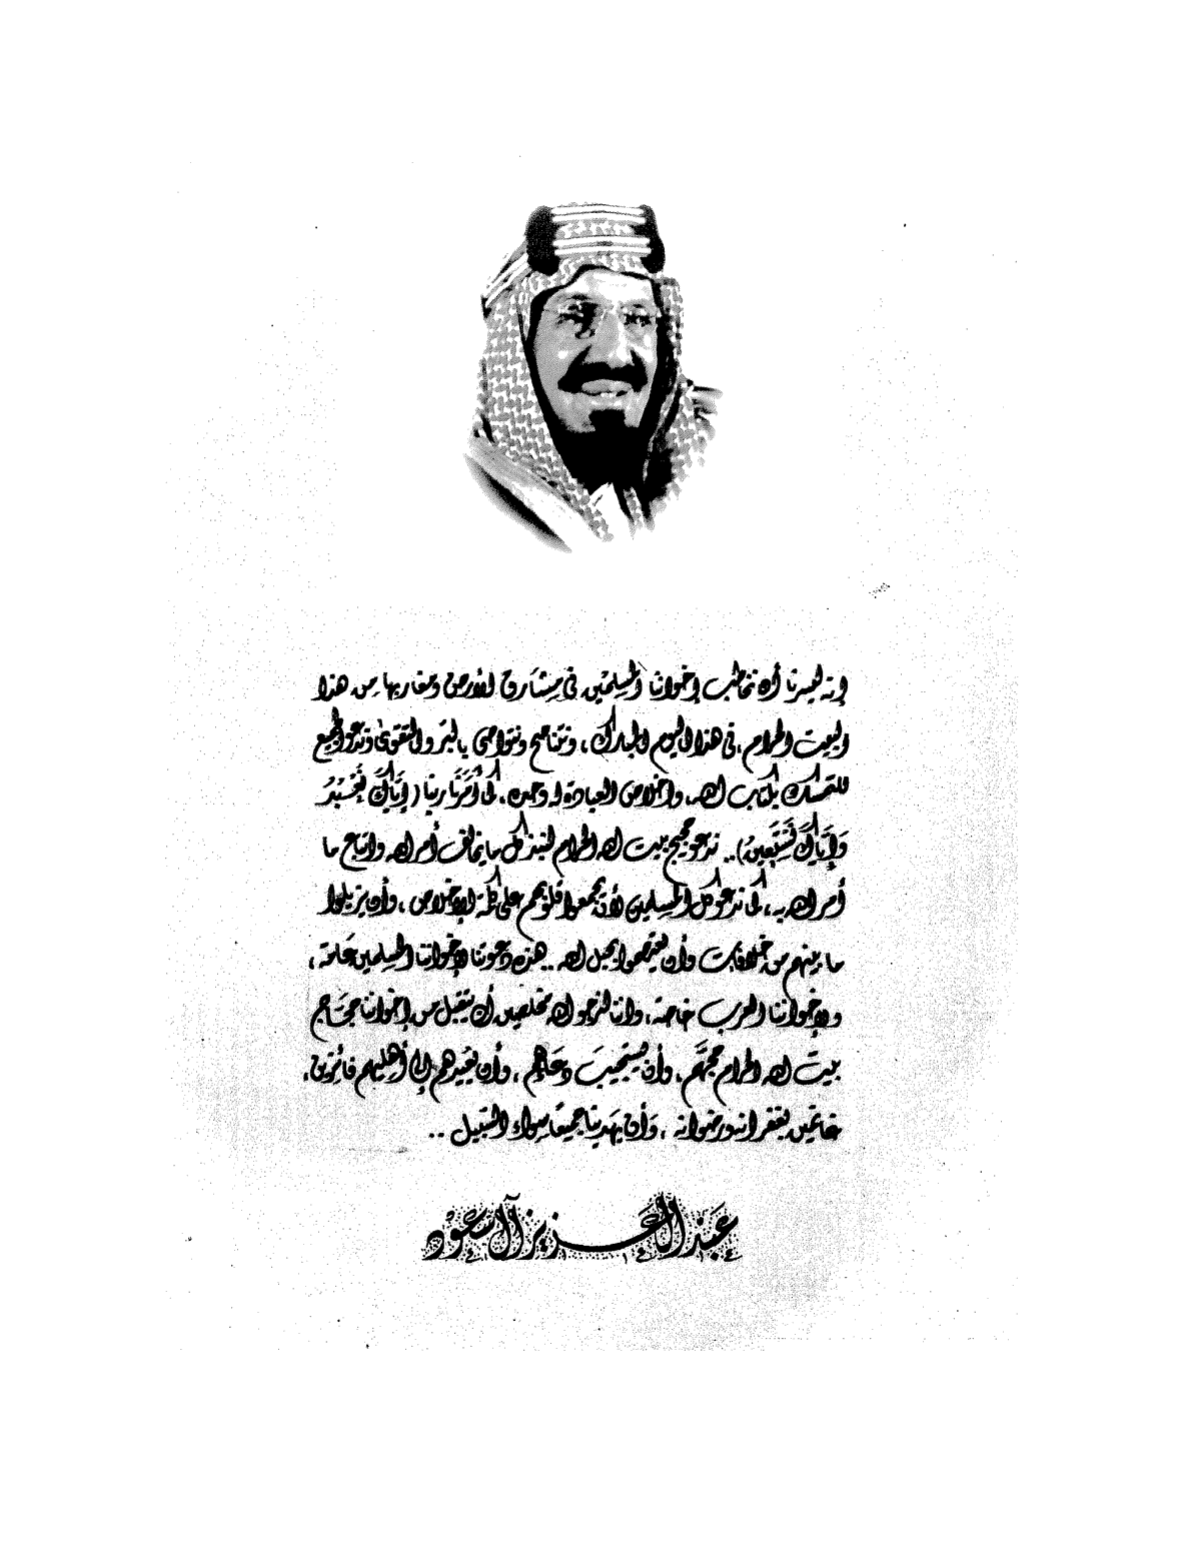 إنه ليسرنا أن نخاطب إخواننا المسلمين في مشارق الأرض ومغاربها من هذا
البيت الحرام ، في هذا اليوم المبارك ، ونتناصح ونتواصى بالبر والتقوى وندعو الجميع
للتمسك بكتاب الله، وإخلاص العبادة له وحده ، كما أمرنا ربنا ( إِيَّاكَ نَعْبُدُ
وَإِيَّاكَ نَسْتَعِينُ ) .. ندعو حجيج بيت الله الحرام لنبذ كل ما يخالف أمر الله واتباع ما
أمر الله به ، كما ندعو كل المسلمين لأن يجمعوا قلوبهم على كلمة الإخلاص ، وأن يزيلوا
ما بينهم من خلافات وأن يعتصموا بحبل الله .. هذه دعوتنا لإخواننا المسلمين عامة ،
ولإخواننا العرب خاصة ، وإننا لنرجو الله مخلصين أن يتقبل من إخواننا حجاج
بيت الله الحرام حجهم ، وأن يستجيب دعاءهم ، وأن يعيدهم إلى أهليهم فائزين ،
غانمين بغفرانه ورضوانه ، وأن يهدينا جميعًا سواء السبيل ..
عبد العزيز آل سعود